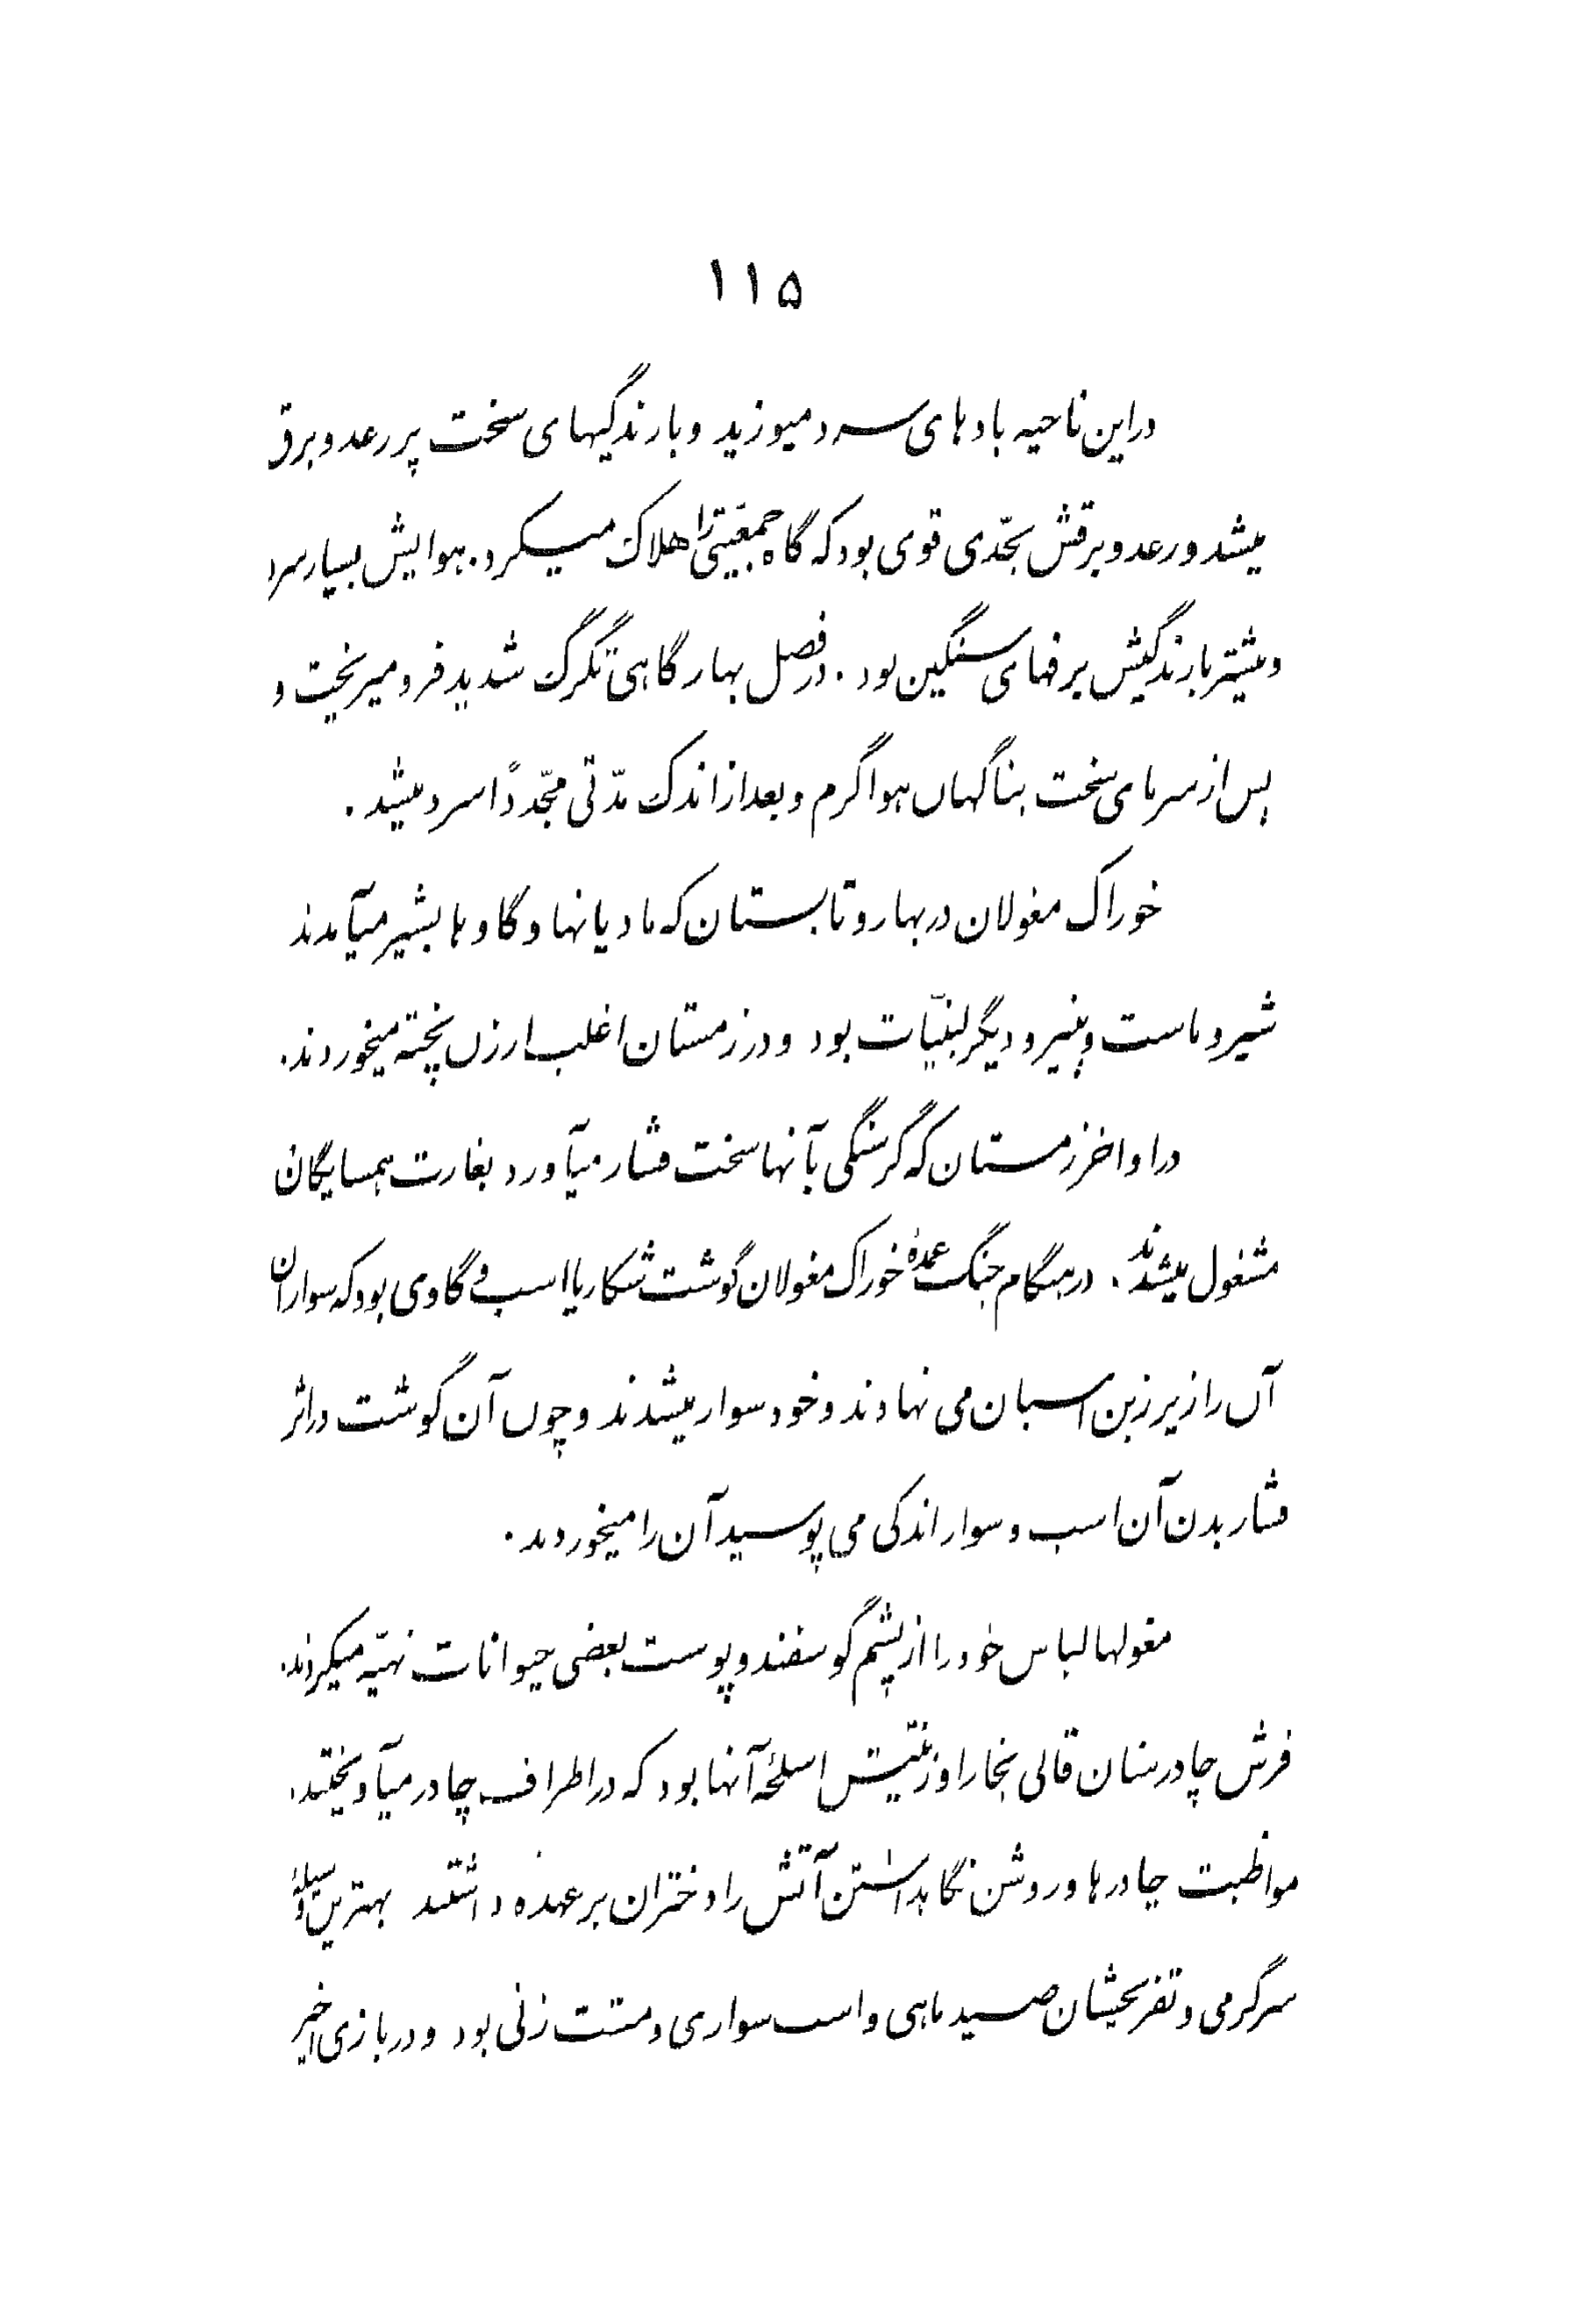 ۱۱۵
در این ناحیه بادهای سرد میوزید و بارندگیهای سخت پر رعد و برق
میشد و رعد و برقش بحدّی قوی بود که گاه جمعیّتی را هلاک میکرد. هوایش بسیار سرد
و بیشتر بارندگیش برفهای سنگین بود. در فصل بهار گاهی تگرگ شدید فرو میریخت و
پس از سرمای سخت بناگهان هوا گرم و بعد از اندک مدّتی مجّدداً سرد میشد.
خوراک مغولان در بهار و تابستان که مادیانها و گاوها بشیر میآمدند
شیر و ماست و پنیر و دیگر لبنیّات بود و در زمستان اغلب ارزن پخته میخوردند.
در اواخر زمستان که گرسنگی بآنها سخت فشار میآورد بغارت همسایگان
مشغول میشدند. در هنگام جنگ عمدهٔ خوراک مغولان گوشت شکار یا اسب و گاوی بود که سواران
آن را زیر زین اسبان می نهادند و خود سوار میشدند و چون آن گوشت در اثر
فشار بدن آن اسب و سوار اندکی می پوسید آن را میخوردند.
مغولها لباس خود را از پشم گوسفند و پوست بعضی حیوانات تهیّه میکردند.
فرش چادرشان قالی بخارا و زینتش اسلحهٔ آنها بود که در اطراف چادر میآویختند.
مواظبت چادرها و روشن نگاهداشتن آتش را دختران بر عهده داشتند بهترین وسیلهٔ
سرگرمی و تفریحشان صید ماهی و اسب سواری و مشت زنی بود و در بازی اخیر